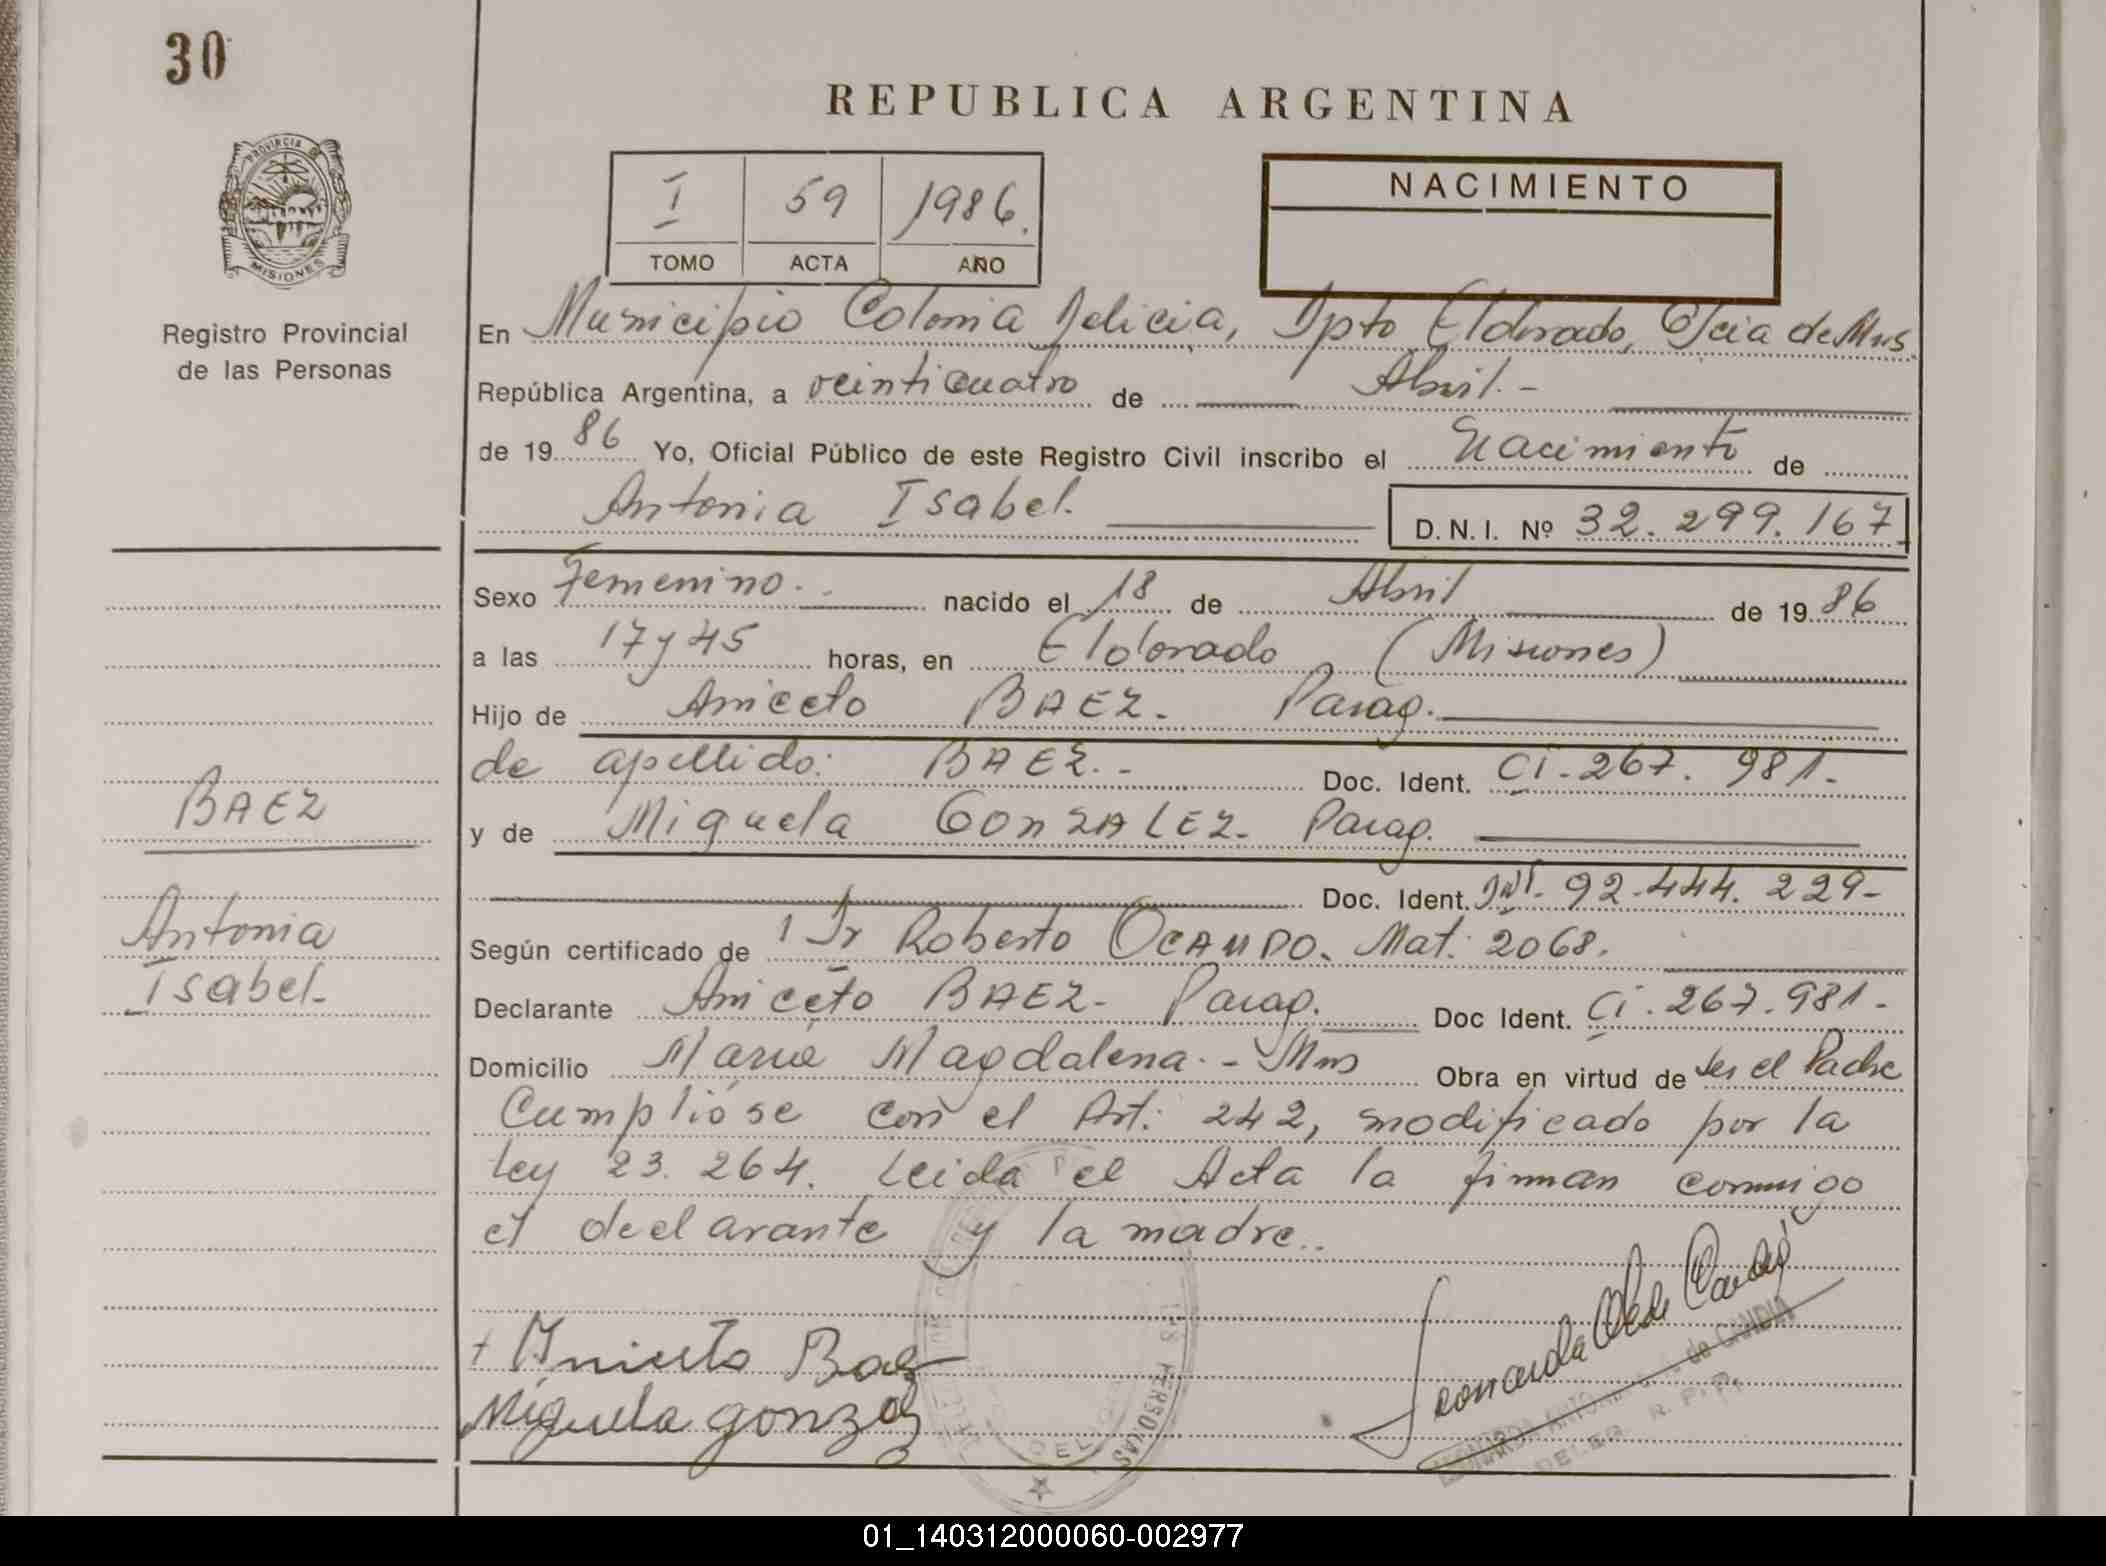 30
REPUBLICA ARGENTINA
PROVINCIA DE
MISIONES
Registro Provincial
de las Personas
I 59 1986.
TOMO ACTA AÑO
NACIMIENTO
En Municipio Colonia Delicia, Dpto Eldorado, Pcia de Mnes
República Argentina, a veinticuatro de Abril.-
de 19 86 Yo, Oficial Público de este Registro Civil inscribo el Nacimiento de
Antonia Isabel. D.N.I. Nº 32.299.167
Sexo Femenino.. nacido el 18 de Abril de 19 86
a las 17 y 45 horas, en Eldorado, (Misiones)
Hijo de Aniceto BAEZ. Parag.
de apellido: BAEZ.- Doc. Ident. Ci. 267. 981.-
y de Miguela GONZALEZ. Parag.
Doc. Ident. DNI. 92.444. 229-
Según certificado de Dr Roberto OCAMPO. Mat. 2068.
Declarante Aniceto BAEZ- Parag. Doc Ident. Ci. 267.981.-
Domicilio María Magdalena.- Mnes Obra en virtud de ser el Padre
Cumplióse con el Art. 242, modificado por la
Ley 23.264. Leida el Acta la firman conmigo
el declarante y la madre..
BAEZ
Antonia
Isabel-
Aniceto Baez
Miguela gonzalez
Leonarda
de CANDIA
DELEG. R. P. P.
LAS PERSONAS
01_140312000060-002977